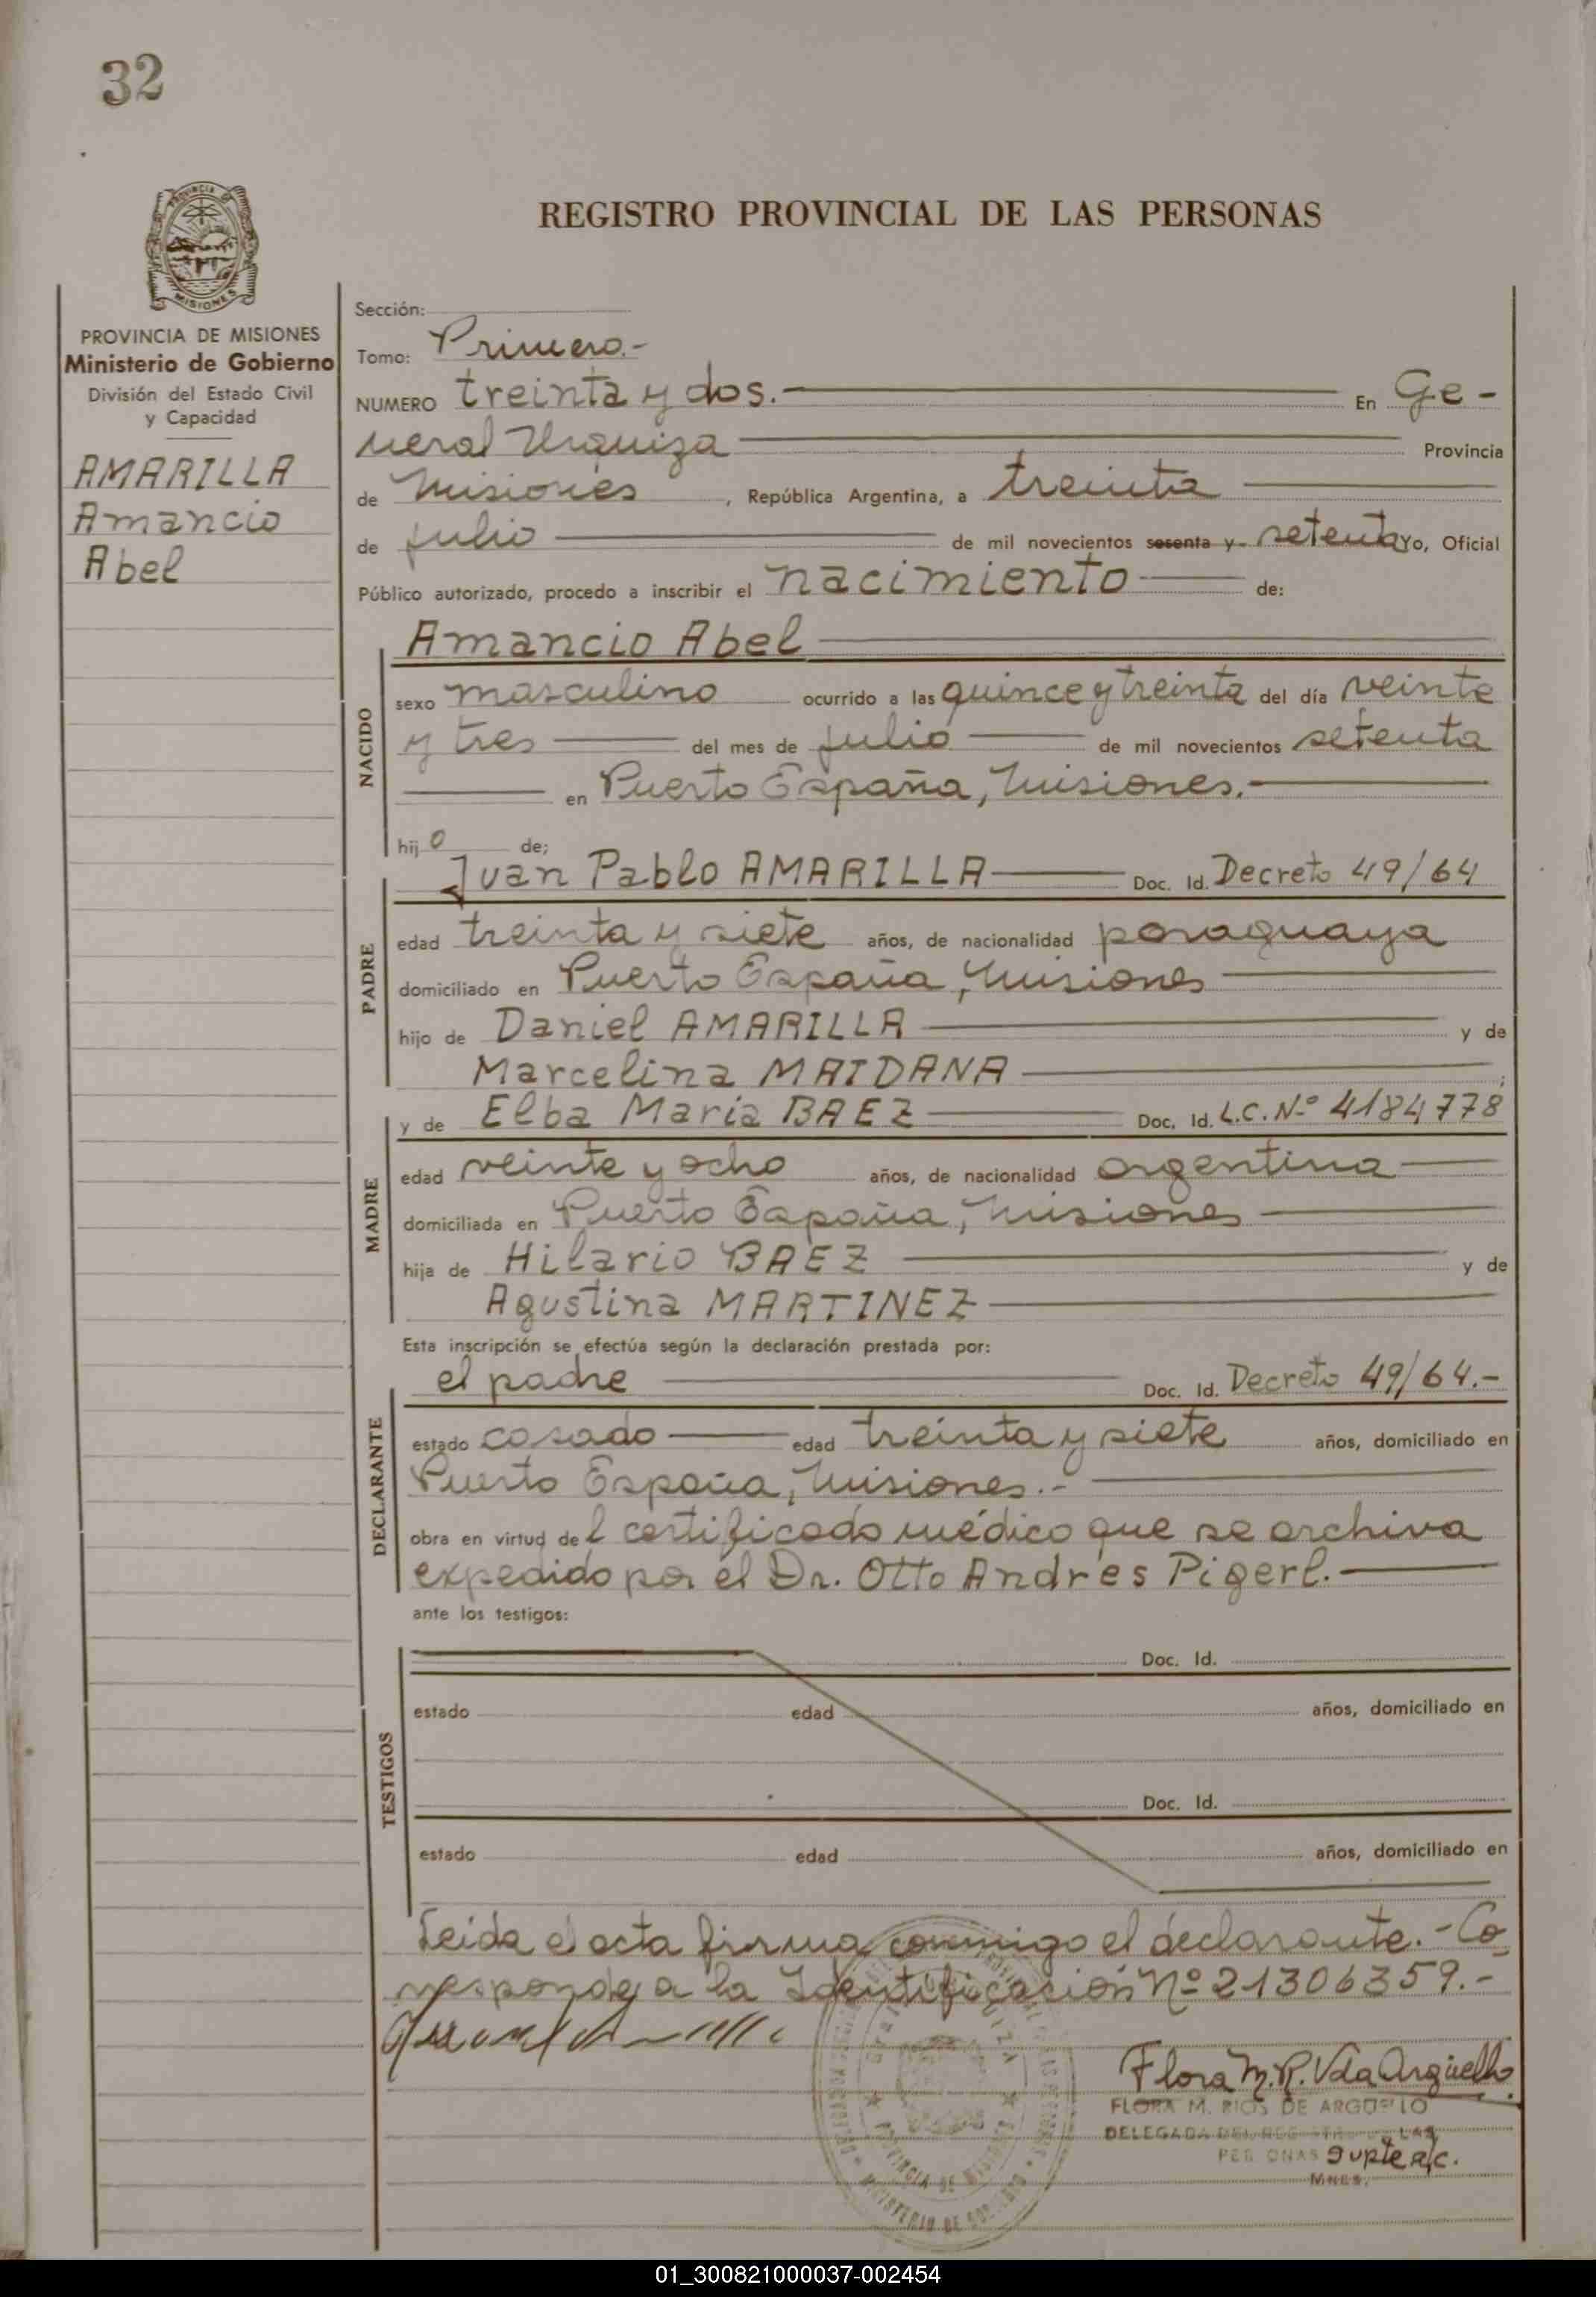 32
PROVINCIA DE MISIONES
REGISTRO PROVINCIAL DE LAS PERSONAS
PROVINCIA DE MISIONES
Ministerio de Gobierno
División del Estado Civil
y Capacidad
AMARILLA
Amancio
Abel
Sección:
Tomo: Primero.-
NUMERO treinta y dos.- En Ge-
neral Urquiza Provincia
de Misiones, República Argentina, a treinta
de julio de mil novecientos sesenta y setenta Yo, Oficial
Público autorizado, procedo a inscribir el nacimiento de:
NACIDO
Amancio Abel
sexo masculino ocurrido a las quince y treinta del día veinte
y tres del mes de julio de mil novecientos setenta
en Puerto España, Misiones.-
hijo de;
PADRE
Juan Pablo AMARILLA Doc. Id. Decreto 49/64
edad treinta y siete años, de nacionalidad paraguaya
domiciliado en Puerto España, Misiones
hijo de Daniel AMARILLA y de
Marcelina MAIDANA ;
MADRE
y de Elba María BAEZ Doc. Id. L.C. Nº 4184778
edad veinte y ocho años, de nacionalidad argentina
domiciliada en Puerto España, Misiones
hija de Hilario BAEZ y de
Agustina MARTINEZ
Esta inscripción se efectúa según la declaración prestada por:
DECLARANTE
el padre Doc. Id. Decreto 49/64.-
estado casado edad treinta y siete años, domiciliado en
Puerto España, Misiones.-
obra en virtud del certificado médico que se archiva
expedido por el Dr. Otto Andrés Pigerl.-
ante los testigos:
TESTIGOS
Doc. Id.
estado edad años, domiciliado en
Doc. Id.
estado edad años, domiciliado en
Leida el acta firma conmigo el declarante.- Co
rresponde a la Identificación Nº 21306359.-
Flora M. R. Vda Argüello
FLORA M. RIOS DE ARGUELLO
DELEGADA DEL REGISTRO DE LAS
PERSONAS Suple a/c.
MNES.
PROVINCIA DE MISIONES
MINISTERIO DE GOBIERNO
01_300821000037-002454